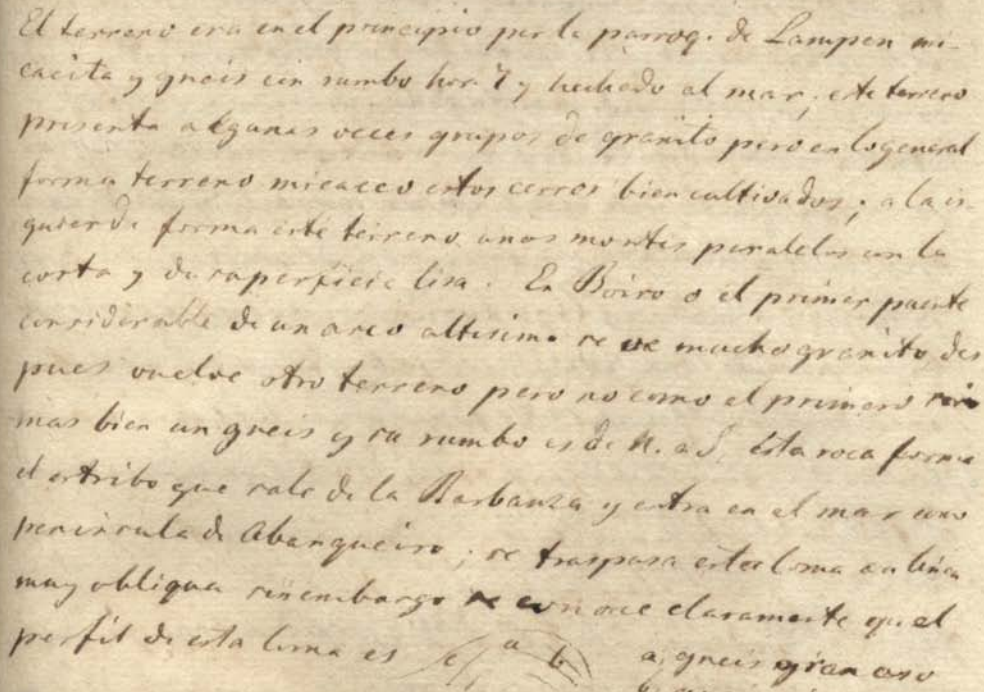 El terreno era en el principio por la parroq. de Lampon mi-
cacita y gneis con rumbo hor. 7 y hechado al mar; este terreno
presenta algunas veces grupos de granito pero en lo general
forma terreno micaceo estos cerros bien cultivados; a la is-
quierda forma este terreno unos montes paralelos con la
costa y de superficie lisa. En Boiro o el primer puente
considerable de un arco altisimo se ve mucho granito des
pues vuelve otro terreno pero no como el primero sino
mas bien un gneis y su rumbo es de N. a S. Esta roca forma
el estribo que sale de la Barbanza y entra en el mar como
peninsula de Abanqueiro; se traspasa esta loma en linea
muy obliqua sinembargo se conoce claramente que el
perfil de esta loma es c a b
a, gneis granoso